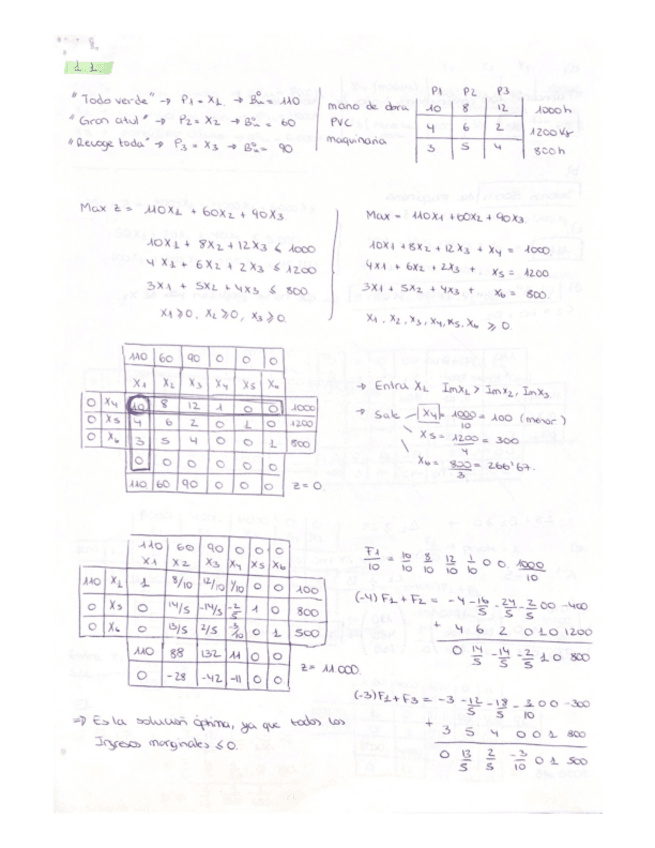 1.1.
"Todo verde" → P1 = X1 → Bº = 110
"Gran atul" → P2 = X2 → Bº = 60
"Revoge toda" → P3 = X3 → Bº = 90
P1 P2 P3
mano de obra 10 8 12 1000h
PVC 4 6 2 1200 Kg
maquinaria 3 5 4 800h
Max Z = 110X1 + 60X2 + 90X3
10X1 + 8X2 + 12X3 ≤ 1000
4X1 + 6X2 + 2X3 ≤ 1200
3X1 + 5X2 + 4X3 ≤ 800
X1 ≥ 0, X2 ≥ 0, X3 ≥ 0.
Max = 110X1 + 60X2 + 90X3.
10X1 + 8X2 + 12X3 + X4 = 1000
4X1 + 6X2 + 2X3 + X5 = 1200
3X1 + 5X2 + 4X3 + X6 = 800.
X1, X2, X3, X4, X5, X6 ≥ 0.
110 60 90 0 0 0
X1 X2 X3 X4 X5 X6
0 X4 10 8 12 1 0 0 1000
0 X5 4 6 2 0 1 0 1200
0 X6 3 5 4 0 0 1 800
0 0 0 0 0 0
110 60 90 0 0 0 Z = 0.
→ Entra X1 Imx1 > Imx2, Imx3
→ Sale X4 = 1000/10 = 100 (menor)
X5 = 1200/4 = 300
X6 = 800/3 = 266'67.
110 60 90 0 0 0
X1 X2 X3 X4 X5 X6
110 X1 1 8/10 12/10 1/10 0 0 100
0 X5 0 14/5 -14/5 -2/5 1 0 800
0 X6 0 13/5 2/5 -3/10 0 1 500
110 88 132 11 0 0
0 -28 -42 -11 0 0 Z = 11000.
⇒ Es la solución óptima, ya que todos los
Ingresos marginales ≤ 0.
F1/10 = 10/10 8/10 12/10 1/10 0 0 1000/10
(-4)F1 + F2 = -4 -16/5 -24/5 -2/5 0 0 -400
+ 4 6 2 0 1 0 1200
0 14/5 -14/5 -2/5 1 0 800
(-3)F1 + F3 = -3 -12/5 -18/5 -3/10 0 0 -300
+ 3 5 4 0 0 1 800
0 13/5 2/5 -3/10 0 1 500